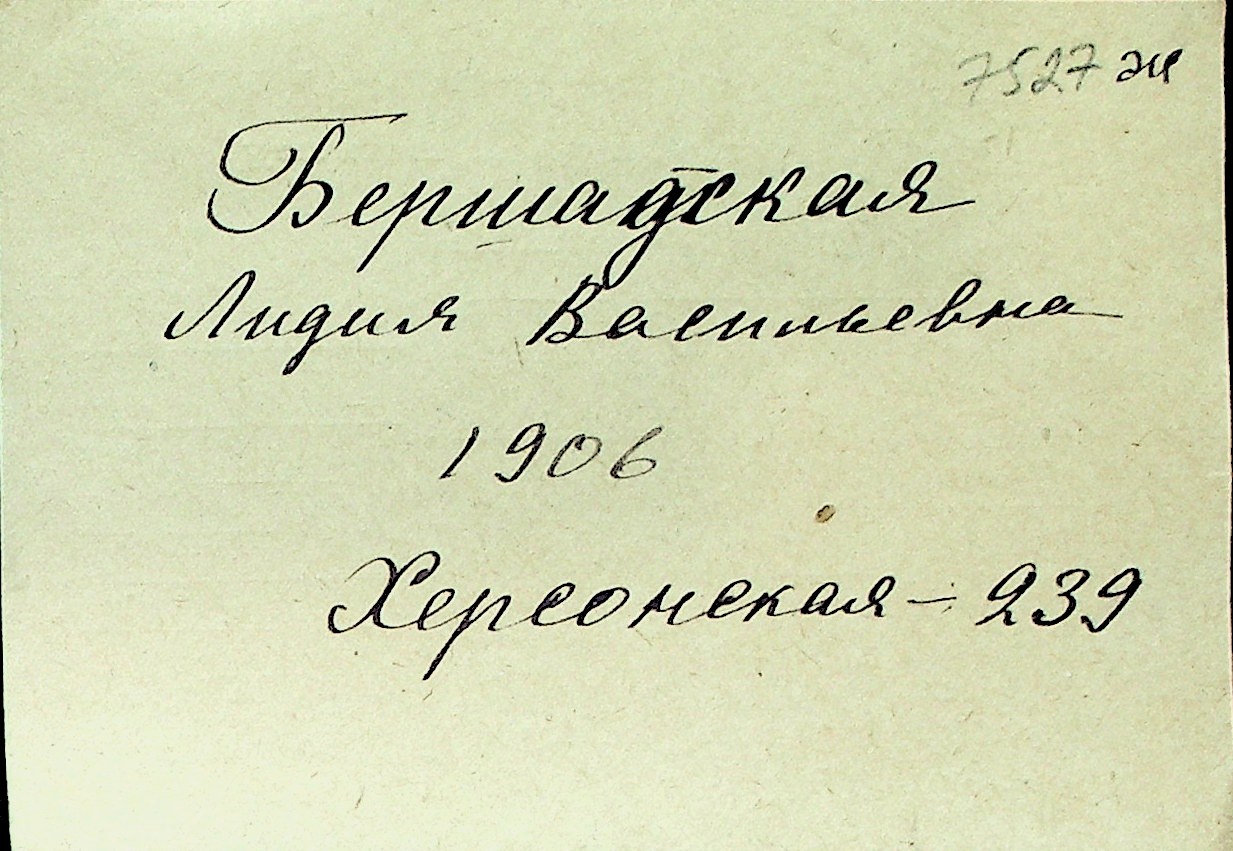 7527 ж
Бершадская
Лидия Васильевна
1906
Херсонская - 239